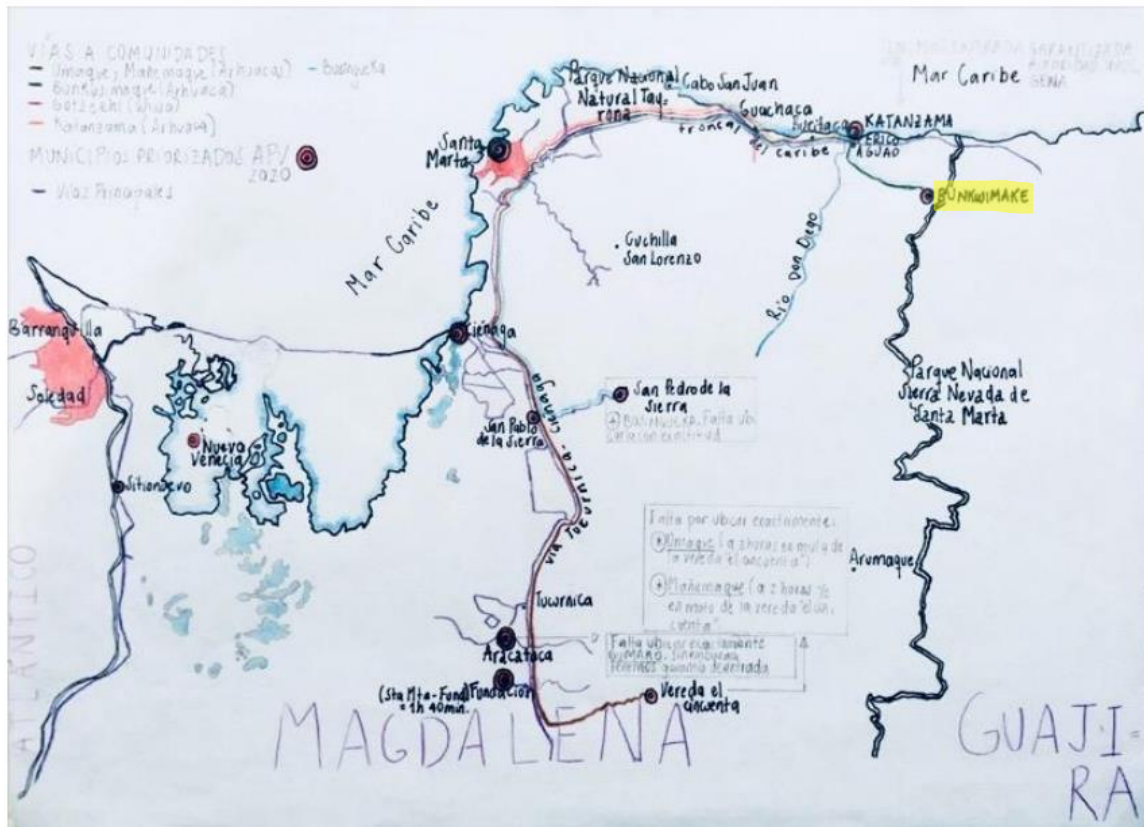 VÍAS A COMUNIDADES
Umaque y Mañemaque (Arhuacas)
Bunkuimaque (Arhuaca)
Gotzezhi (Wiwa)
Katanzama (Arhuaca)
MUNICIPIOS PRIORIZADOS APV
2020
Vías Principales
Mar Caribe
GENA
Parque Nacional
Natural Tay-
rona
Cabo San Juan
Guachaca
Buritaca
KATANZAMA
troncal
del caribe
BUNKWIMAKE
Santa
Marta
Mar Caribe
Cuchilla
San Lorenzo
Río Don Diego
Barranquilla
Soledad
Ciénaga
Parque Nacional
Sierra Nevada de
Santa Marta
San Pedro de la
Sierra
San Pablo
de la Sierra
Nueva
Venecia
Sitionuevo
Vía Tucurnica - Cienaga
Falta por ubicar exactamente:
Umaque (a 2 horas en mula de
la vereda "el cincuenta")
Mañemaque (a 2 horas
en mula de la vereda "el cin
cuenta".
Arumaque
Tucurnica
Aracataca
Falta ubicar exactamente
(Sta Mta - Fund) Fundación
= 1h 40min.
Vereda el
cincuenta
ATLÁNTICO
MAGDALENA
GUAJI=
RA